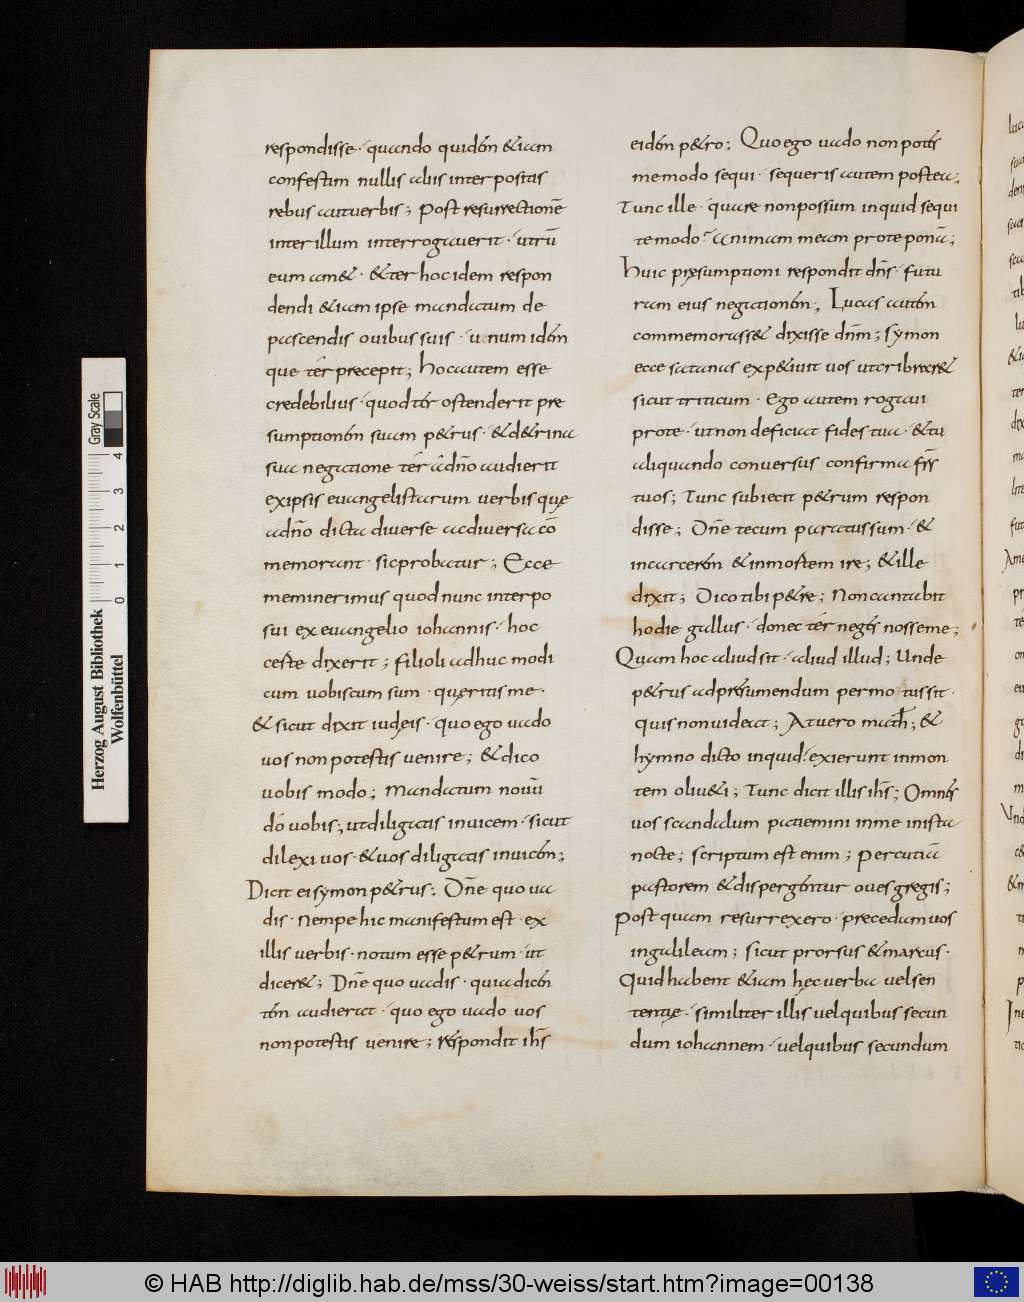 respondisse · quando quidē &iam
confestim nullis aliis interpositis
rebus autverbis; Post resurrectionē
inter illum interrogaverit · utrū
eum am& · &ter hoc idem respon
dendi &iam ipse mandatum de
pascendis ovibus suis · unum idē
que tēr precepit; hocautem esse
credebilius · quod tēr ostenderit pre
sumptionē suam p&rus · &d&rina
sua negatione tēr adn̄o audierit
exipsis evangelistarum verbis quę
adn̄o dicta diverse addiversa cō
memorant · sicprobatur; Ecce
meminerimus quod nunc interpo
sui ex evangelio iohannis · hoc
ceste dixerit; filioli adhuc modi
cum vobiscum sum · quęritis me ·
& sicut dixit iudęis · quo ego vado
vos non potestis venire; & dico
vobis modo; mandatum novū
dō vobis; utdiligatis invicem · sicut
dilexi vos · &vos diligatis invicēm;
Dicit ei symon p&rus; Dn̄e quo va
dis · Nempe hic manifestum est · ex
illis verbis · notum esse p&rum · ut
dicer&; Dn̄e quo vadis · quia dicēn
tēm audierat · quo ego vado vos
nonpotestis venire; rēspondit ih̄s
eidēm p&ro; Quo ego vado non potēs
memodo sequi · sequeris autem postea;
Tunc ille · quare nonpossum inquid sequi
temodo? animam meam prote ponā;
huic pręsumptioni respondit dn̄s · futu
ram eius negationēm; Lucas autēm
commemorass& dixisse dn̄m; symon
ecce satanas exp&ivit vos utcribrar&
sicut triticum · Ego autem rogavi
prote · utnon deficiat fides tua · &tu
aliquando conversus confirma frs̄
tuos; Tunc subiecit p&rum respon
disse; Dn̄e tecum paratussum · &
incarcerēm &inmoftem ire; &ille
dixit; Dico tibi p&re; Noncantabit
hodie gallus · donec tēr negēs nosseme;
Quam hoc aliud sit · aliud illud; Unde
p&rus adpręsumendum permotussit ·
quis nonvideat; At vero math̄; &
hymno dicto inquid · exierunt inmon
tem oliv&i; Tunc dicit illis ih̄s; Omnēs
vos scandalum patiemini inme inista
nocte; scriptum est enim; Percutiā
pastorem &dispergēntur oves gregis;
Post quam resurrexero · precedam vos
ingalileam; sicut prorsus &marcus ·
Quid habent &iam hęc verba vel sen
tentię · similiter illis vel quibus secun
dum iohannem · vel quibus secundum
Herzog August Bibliothek
Wolfenbüttel
0 1 2 3 4
Gray Scale
© HAB http://diglib.hab.de/mss/30-weiss/start.htm?image=00138